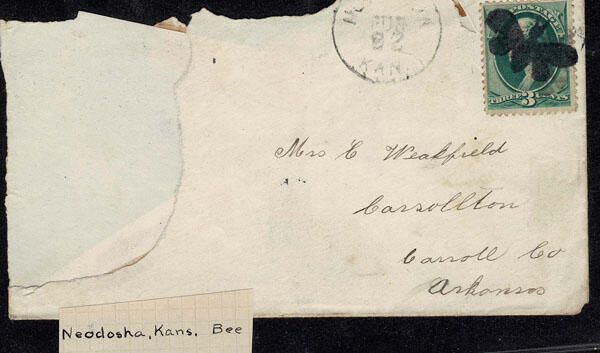 JUN
22
KAN.
POSTAGE
THREE 3 CENTS
Mrs E Weakfield
Carrollton
Carroll Co
Arkansas
Neodosha, Kans. Bee